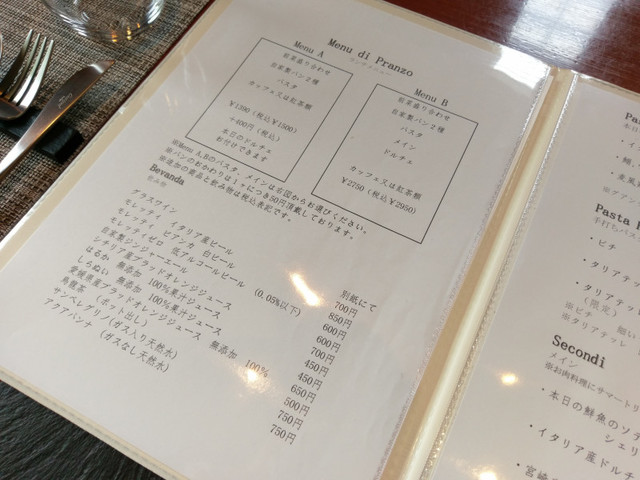 Menu di Pranzo
Menu A
前菜盛り合わせ
自家製パン２種
パスタ
カッフェ又は紅茶類
￥1390(税込￥1500)
+400円(税込)
本日のドルチェ
お付けできます
Menu B
前菜盛り合わせ
自家製パン２種
パスタ
メイン
ドルチェ
カッフェ又は紅茶類
￥2750(税込￥2950)
※Menu A,Bのパスタ、メインは右図からお選びください。
※パンのおかわりは１ヶにつき50円頂戴しております。
※追加の商品と飲み物は税込表記です。
Bevanda
グラスワイン 別紙にて
モレッティ イタリア産ビール 700円
モレッティ ビアンカ 白ビール 850円
モレッティゼロ 低アルコールビール (0.05%以下) 600円
自家製ジンジャーエール 600円
シチリア産ブラッドオレンジジュース 700円
はるか 無添加 100%果汁ジュース 450円
しらぬい 無添加 100%果汁ジュース 450円
愛媛県産ブラッドオレンジジュース 無添加 100% 650円
烏龍茶 (ポット出し) 500円
サンペレグリノ(ガス入り天然水) 750円
アクアパンナ (ガスなし天然水) 750円
Pasta
手打ちパス
・ピチ
・タリアテッ
・タリアテッレ
(限定)
※ピチ
※タリアテッレ
Secondi
メイン
※お肉料理にサマートリ
・本日の鮮魚のソテ
シェリ
・イタリア産ドルチ
・宮崎